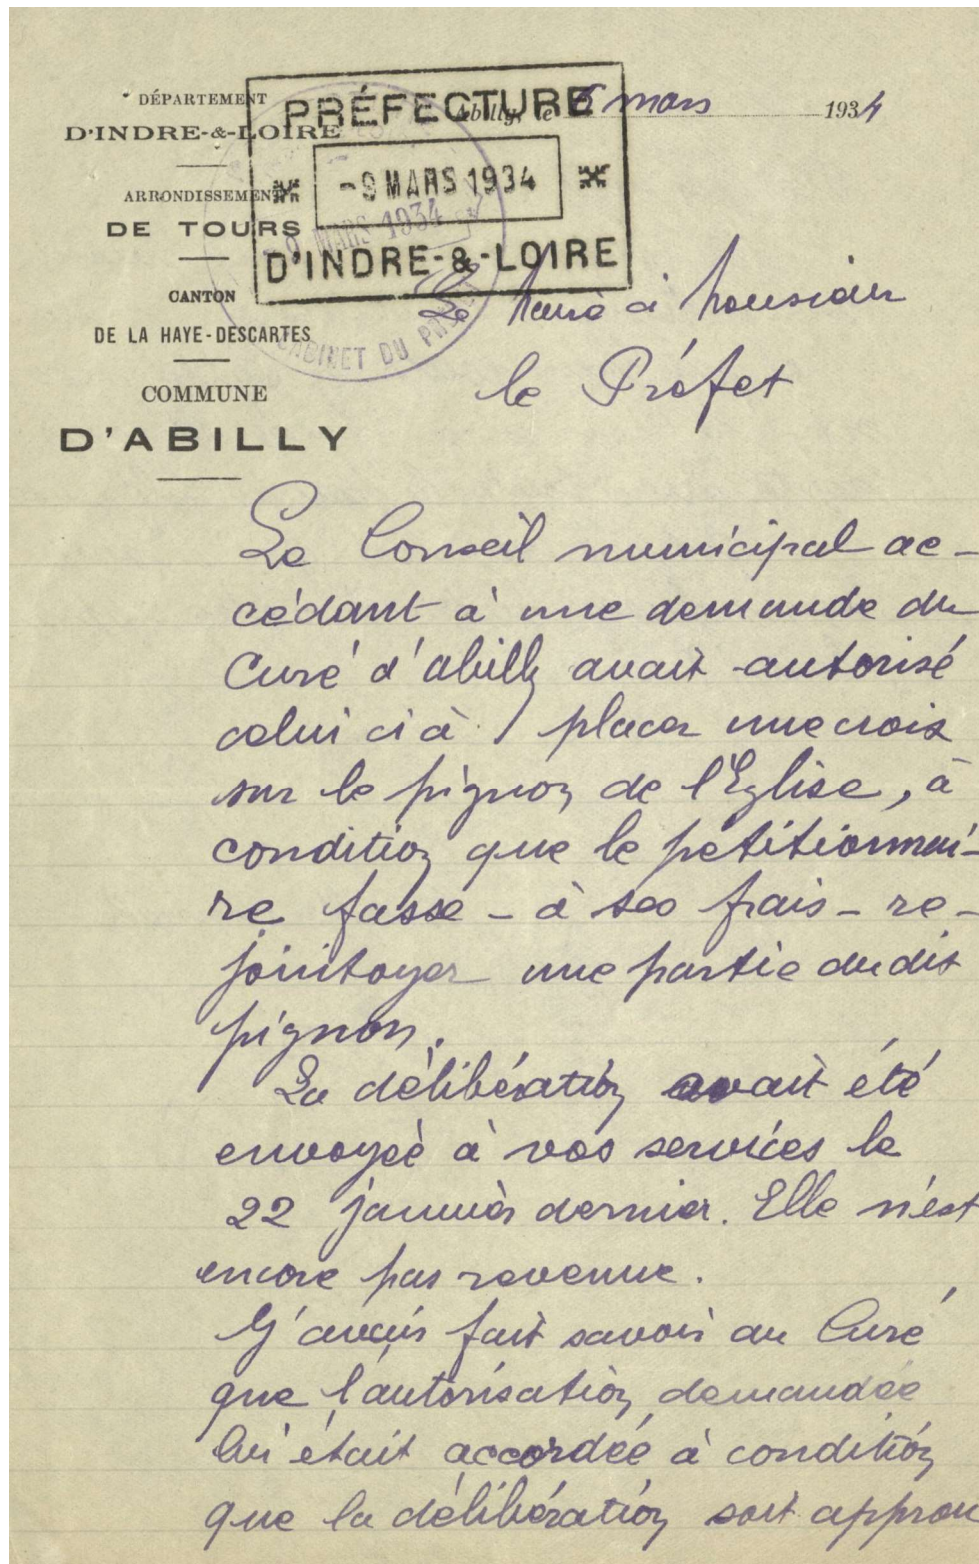 DÉPARTEMENT
D'INDRE-&-LOIRE
ARRONDISSEMENT
DE TOURS
CANTON
DE LA HAYE-DESCARTES
COMMUNE
D'ABILLY
PRÉFECTURE
-9 MARS 1934
D'INDRE-&-LOIRE
9 MARS 1934
CABINET DU PRÉFET
Abilly, le 6 mars 1934
Le Maire à Monsieur
le Préfet
Le Conseil municipal ac-
cédant à une demande du
Curé d'Abilly avait autorisé
celui ci à placer une croix
sur le pignon de l'Eglise, à
condition que le pétitionnai-
re fasse - à ses frais - re-
jointoyer une partie dudit
pignon.
La délibération avait été
envoyée à vos services le
22 janvier dernier. Elle n'est
encore pas revenue.
J'avais fait savoir au Curé
que l'autorisation demandée
lui était accordée à condition
que la délibération soit approu